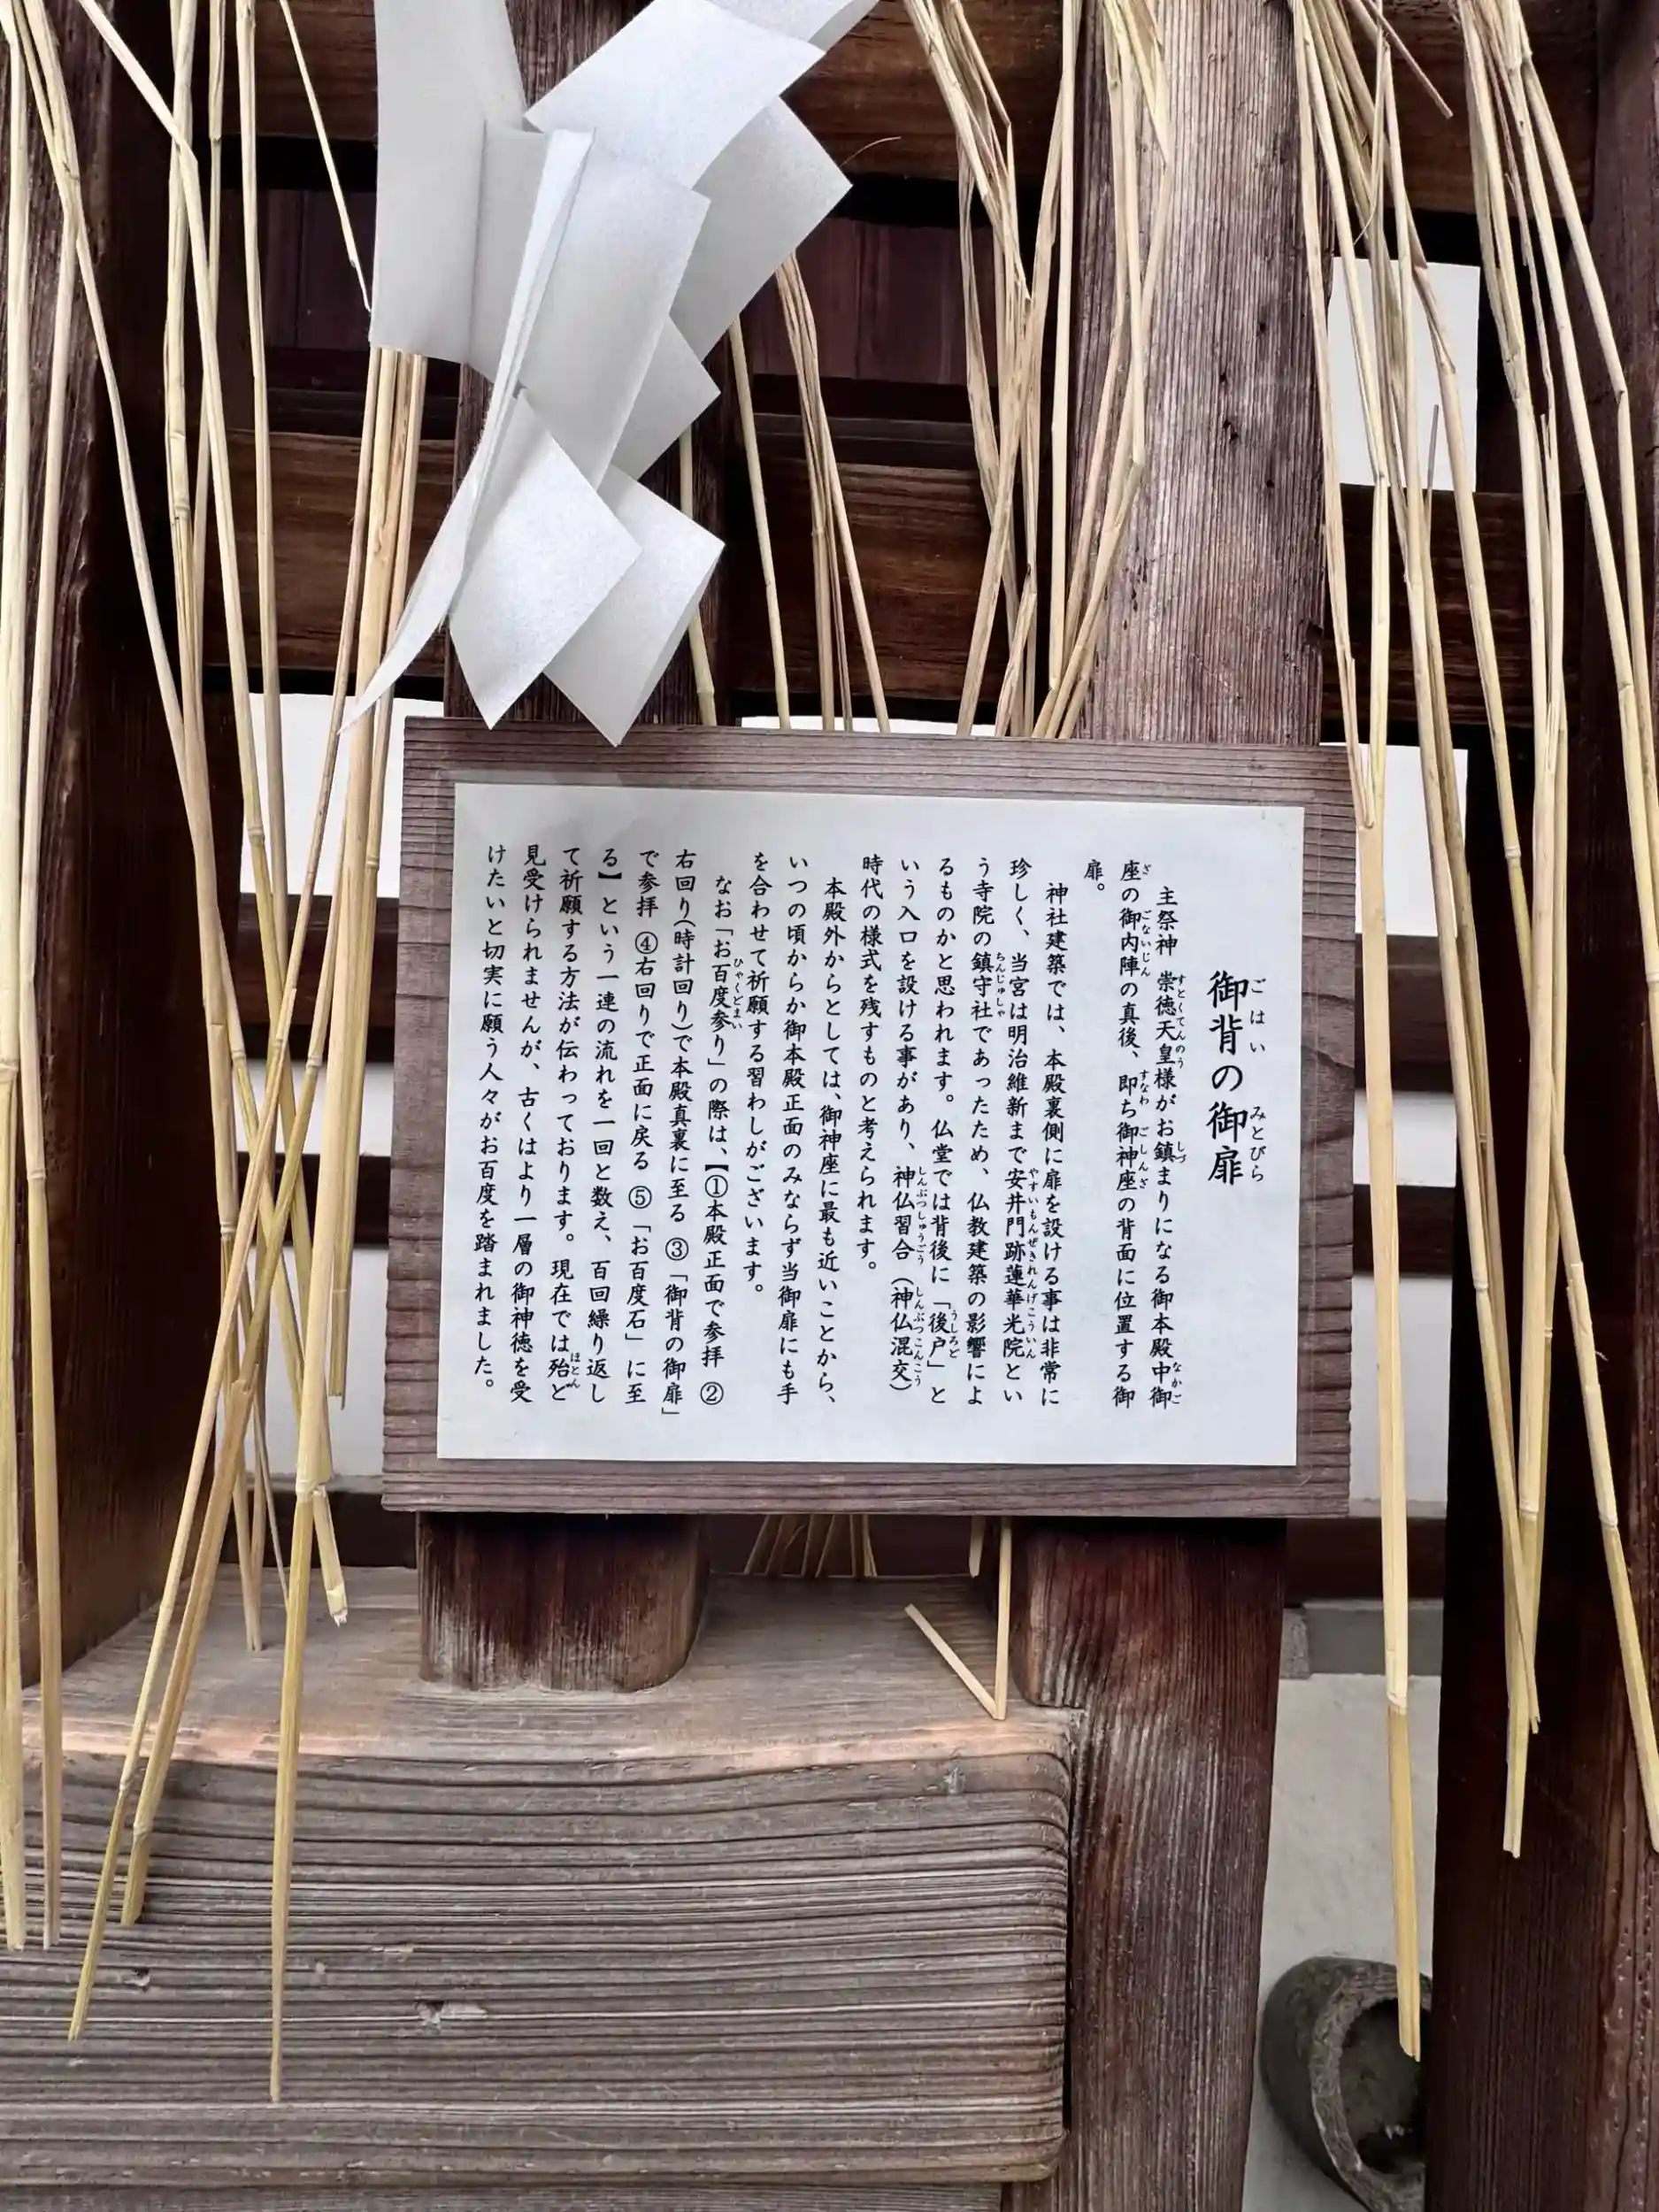 御背の御扉
主祭神　崇徳天皇様がお鎮まりになる御本殿中御
座の御内陣の真後、即ち御神座の背面に位置する御
扉。
神社建築では、本殿裏側に扉を設ける事は非常に
珍しく、当宮は明治維新まで安井門跡蓮華光院とい
う寺院の鎮守社であったため、仏教建築の影響によ
るものかと思われます。仏堂では背後に「後戸」と
いう入口を設ける事があり、神仏習合（神仏混交）
時代の様式を残すものと考えられます。
本殿外からとしては、御神座に最も近いことから、
いつの頃からか御本殿正面のみならず当御扉にも手
を合わせて祈願する習わしがございます。
なお「お百度参り」の際は、【①本殿正面で参拝　②
右回り（時計回り）で本殿真裏に至る　③「御背の御扉」
で参拝　④右回りで正面に戻る　⑤「お百度石」に至
る】という一連の流れを一回と数え、百回繰り返し
て祈願する方法が伝わっております。現在では殆ど
見受けられませんが、古くはより一層の御神徳を受
けたいと切実に願う人々がお百度を踏まれました。